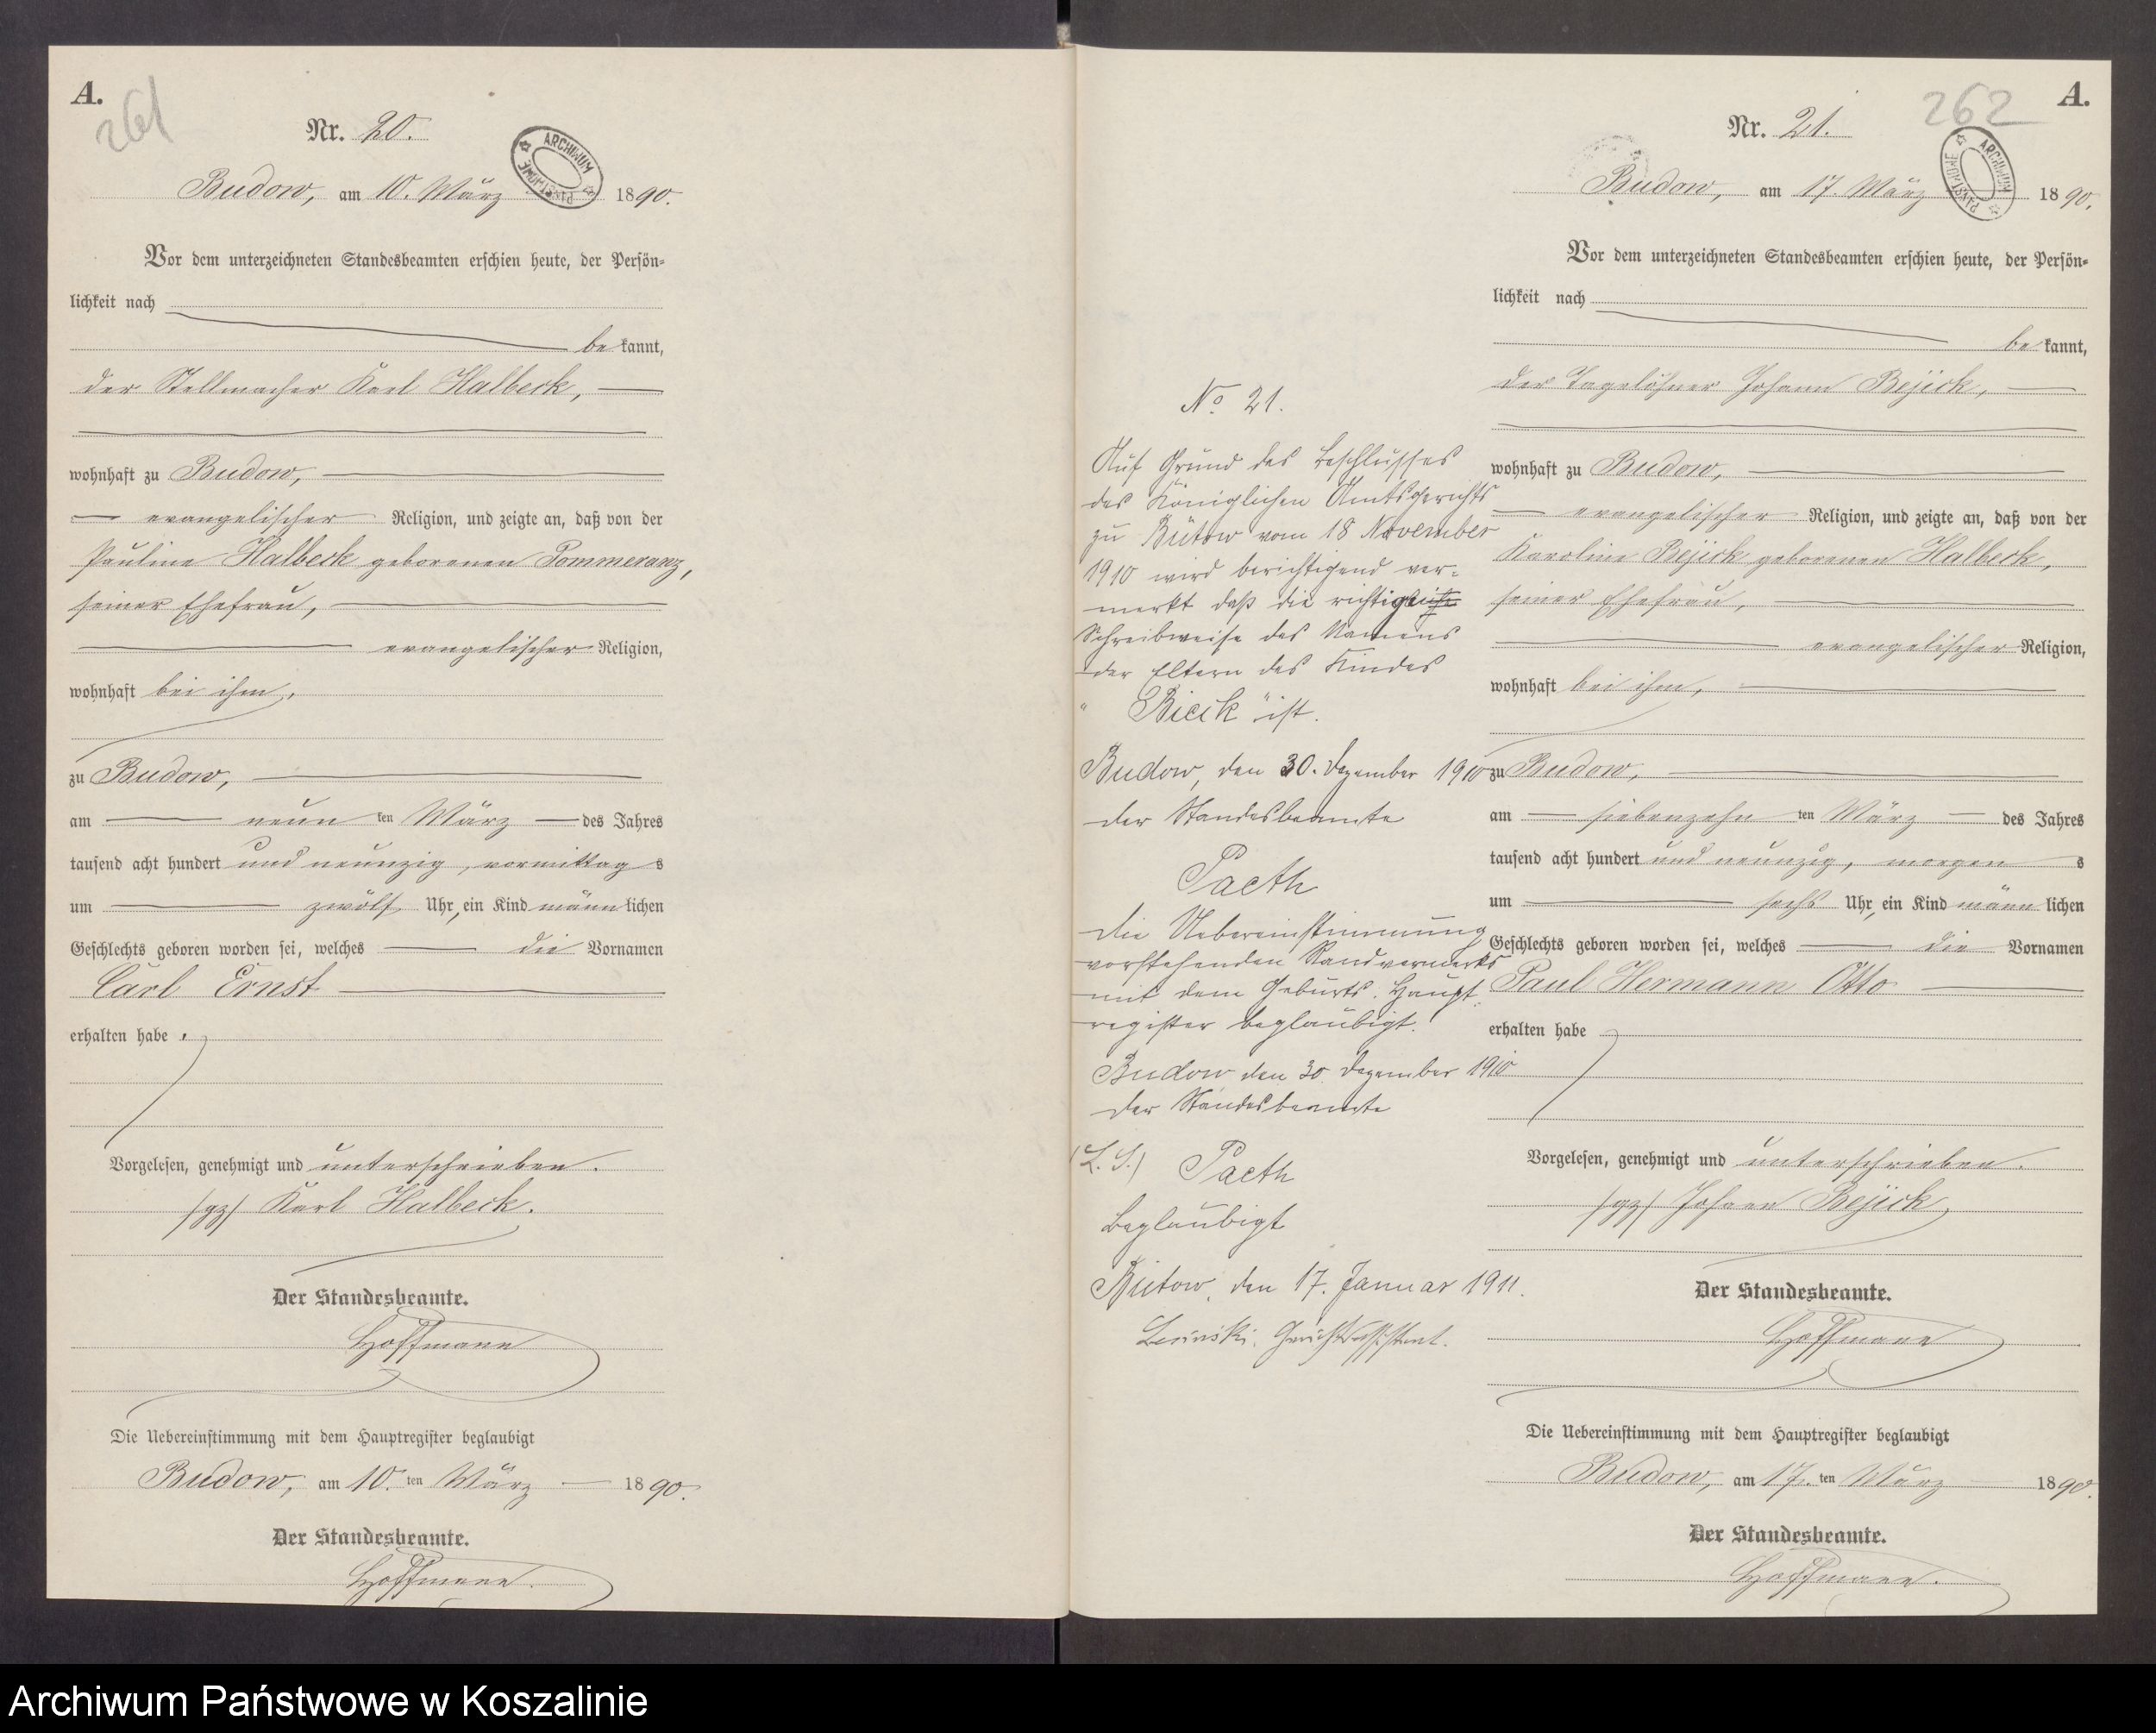 A.
261
Nr. 20.
ARCHIWUM PAŃSTWOWE
Budow, am 10. März 1890.
Vor dem unterzeichneten Standesbeamten erschien heute, der Persön-
lichkeit nach
bekannt,
der Stellmacher Karl Halbeck,
wohnhaft zu Budow,
evangelischer Religion, und zeigte an, daß von der
Pauline Halbeck geborenen Pommeranz,
seiner Ehefrau,
evangelischer Religion,
wohnhaft bei ihm,
zu Budow,
am neun ten März des Jahres
tausend acht hundert und neunzig, vormittags
um zwölf Uhr, ein Kind männlichen
Geschlechts geboren worden sei, welches die Vornamen
Carl Ernst
erhalten habe.
Vorgelesen, genehmigt und unterschrieben.
/gz/ Karl Halbeck.
Der Standesbeamte.
Hoffmann
Die Uebereinstimmung mit dem Hauptregister beglaubigt
Budow, am 10. ten März 1890.
Der Standesbeamte.
Hoffmann.
No 21.
Auf Grund des Beschlusses
des Königlichen Amtsgerichts
zu Bütow vom 18 November
1910 wird berichtigend ver-
merkt daß die richtige
Schreibweise des Namens
der Eltern des Kindes
"Bieck" ist.
Budow, den 30. Dezember 1910
der Standesbeamte
Paeth
die Uebereinstimmung
vorstehenden Randvermerks
mit dem Geburts-Haupt-
register beglaubigt.
Budow den 30 Dezember 1910
der Standesbeamte
(L. S.) Paeth
Beglaubigt
Bütow, den 17. Januar 1911.
Gerichtsassistent.
A.
262
Nr. 21.
ARCHIWUM PAŃSTWOWE
Budow, am 17. März 1890.
Vor dem unterzeichneten Standesbeamten erschien heute, der Persön-
lichkeit nach
bekannt,
der Tagelöhner Johann Bejick,
wohnhaft zu Budow,
evangelischer Religion, und zeigte an, daß von der
Karoline Bejick geborenen Halbeck,
seiner Ehefrau,
evangelischer Religion,
wohnhaft bei ihm,
zu Budow,
am siebenzehn ten März des Jahres
tausend acht hundert und neunzig, morgens
um sechs Uhr, ein Kind männlichen
Geschlechts geboren worden sei, welches die Vornamen
Paul Hermann Otto
erhalten habe
Vorgelesen, genehmigt und unterschrieben.
/gz/ Johann Bejick,
Der Standesbeamte.
Hoffmann
Die Uebereinstimmung mit dem Hauptregister beglaubigt
Budow, am 17. ten März 1890.
Der Standesbeamte.
Hoffmann.
Archiwum Państwowe w Koszalinie